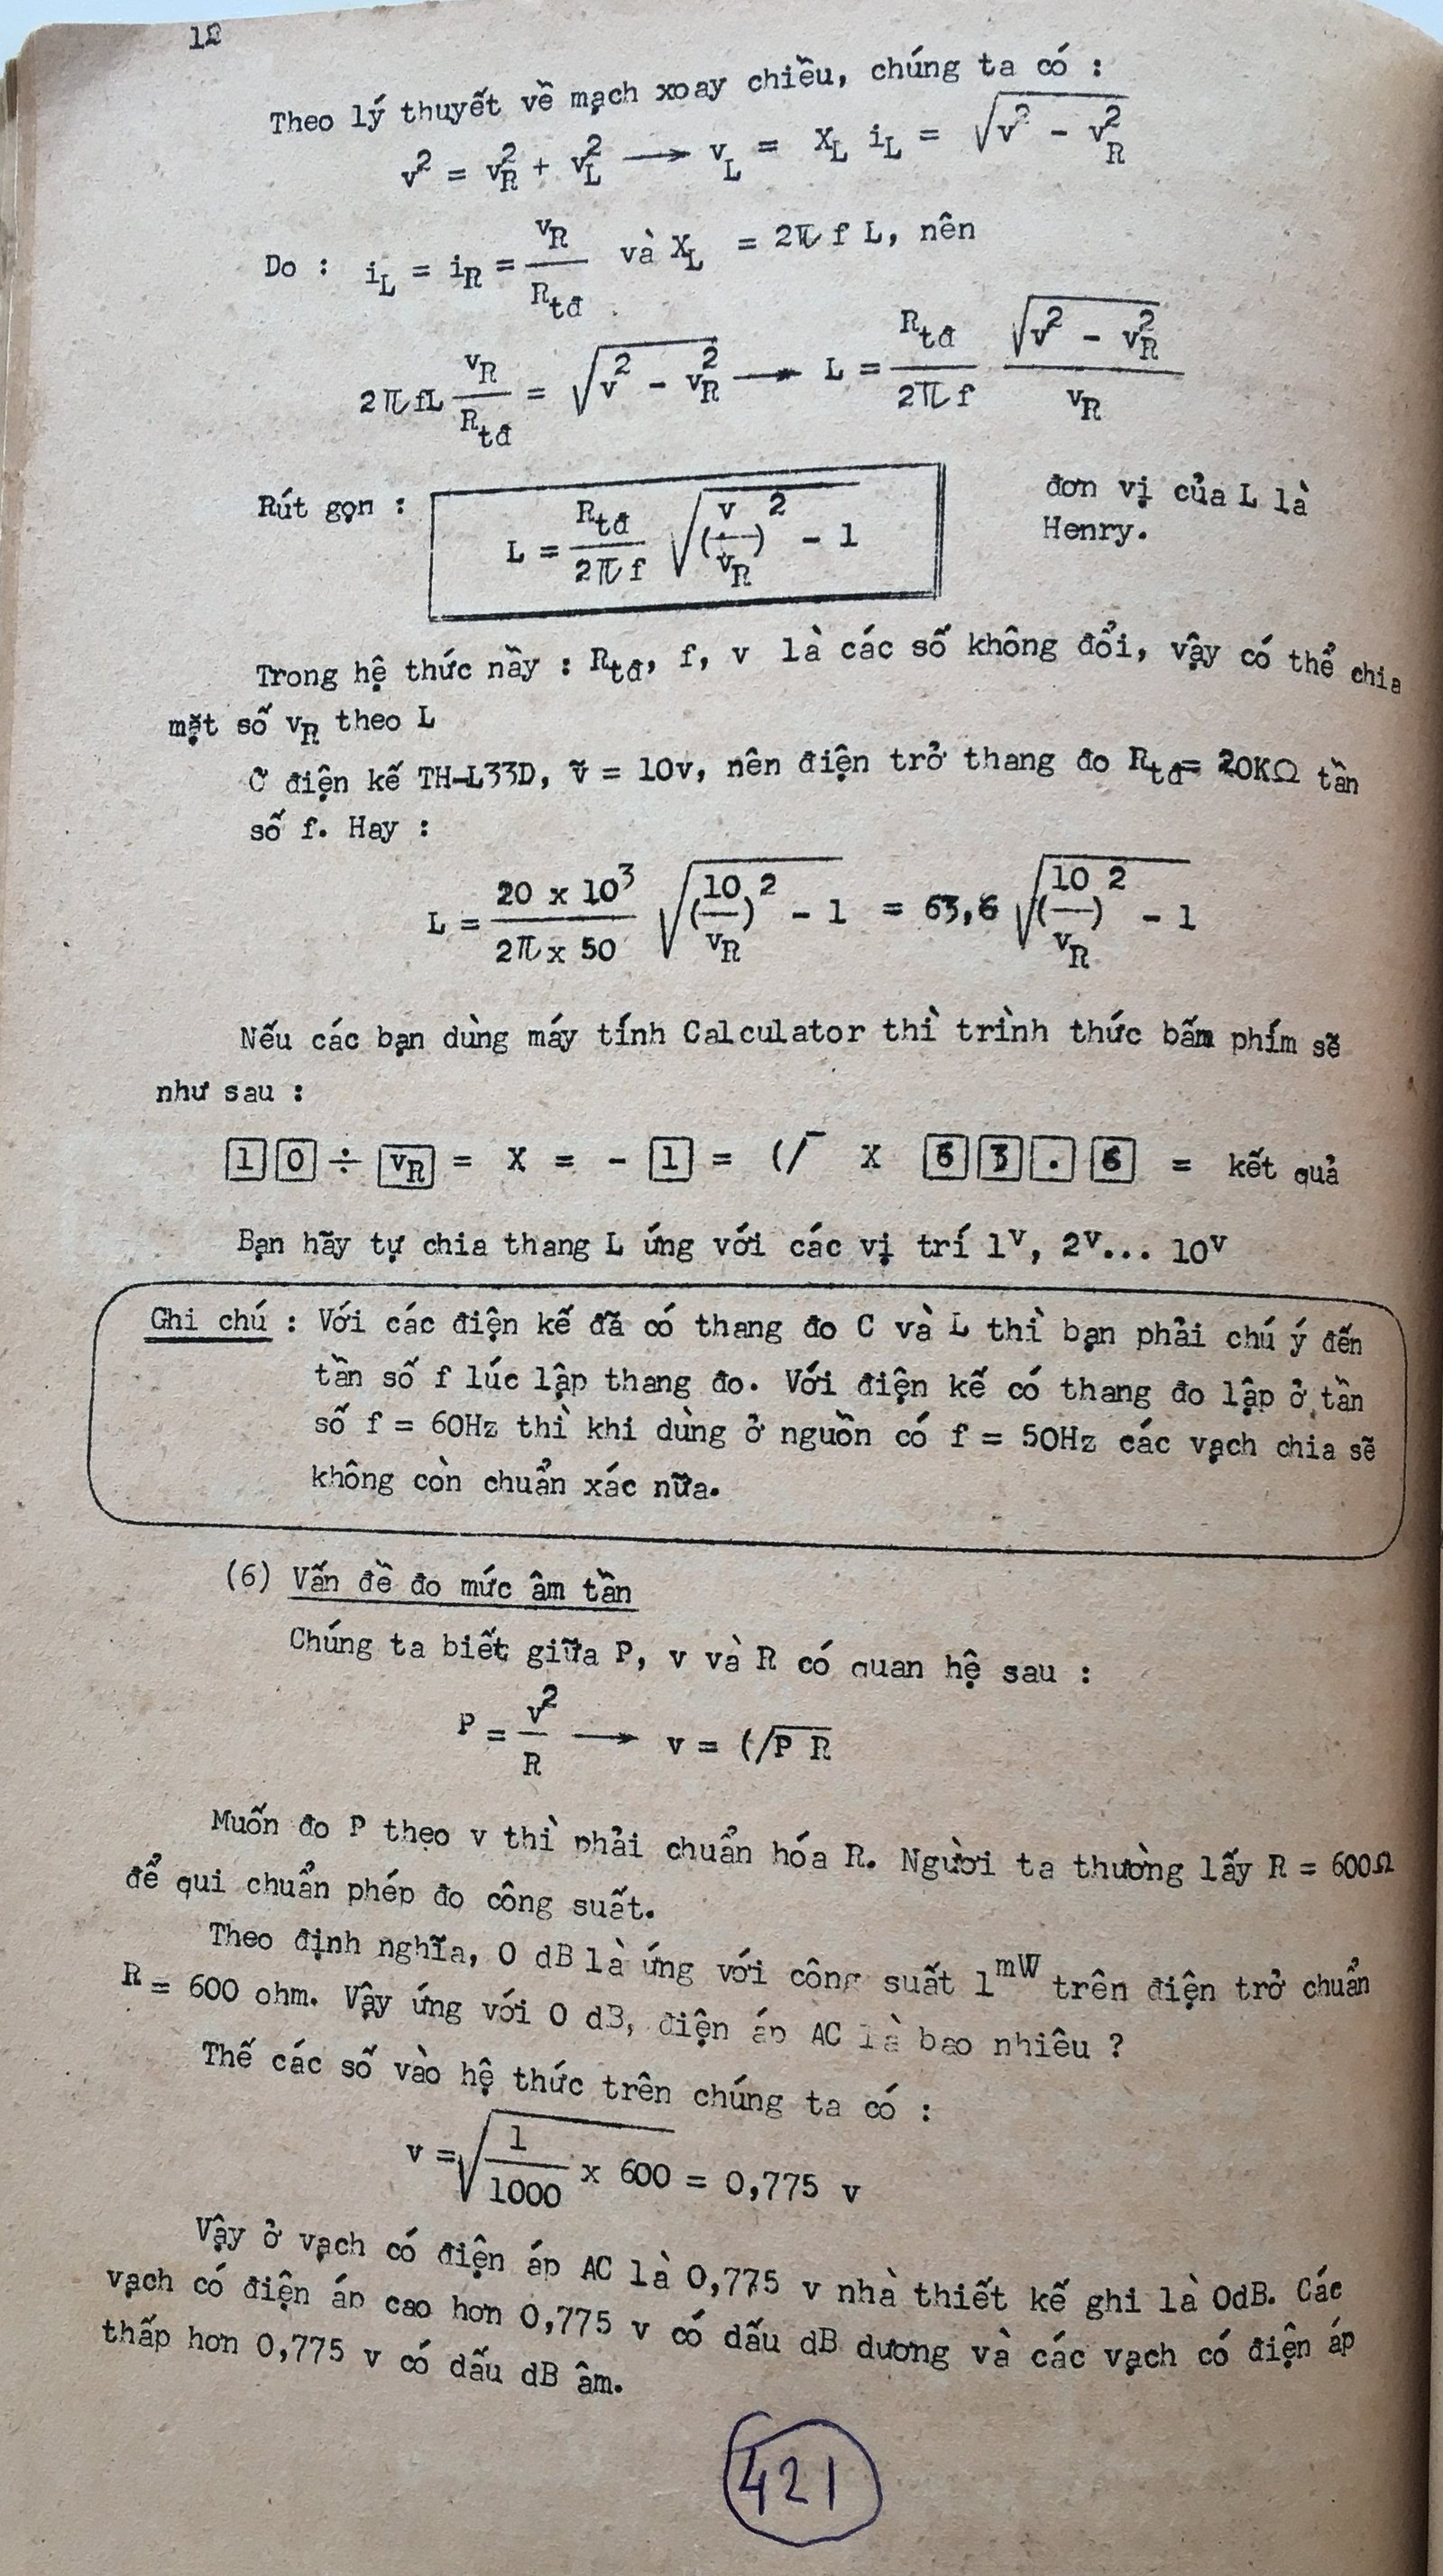 12
Theo lý thuyết về mạch xoay chiều, chúng ta có :
v² = v_R² + v_L² ⟶ v_L = X_L i_L = √(v² - v_R²)
Do : i_L = i_R = v_R / R_tđ và X_L = 2π f L, nên
2π fL v_R / R_tđ = √(v² - v_R²) ⟶ L = R_tđ / 2π f √(v² - v_R²) / v_R
Rút gọn : L = R_tđ / 2π f √((v / v_R)² - 1) đơn vị của L là
Henry.
Trong hệ thức nầy : R_tđ, f, v là các số không đổi, vậy có thể chia
mặt số v_R theo L
Ở điện kế TH-L33D, ṽ = 10v, nên điện trở thang đo R_tđ = 20KΩ tần
số f. Hay :
L = 20 x 10³ / 2π x 50 √((10 / v_R)² - 1) = 63,6 √((10 / v_R)² - 1)
Nếu các bạn dùng máy tính Calculator thì trình thức bấm phím sẽ
như sau :
[1] [0] ÷ [v_R] = X = - [1] = √ X [6] [3] [.] [6] = kết quả
Bạn hãy tự chia thang L ứng với các vị trí 1ᵛ, 2ᵛ... 10ᵛ
Ghi chú : Với các điện kế đã có thang đo C và L thì bạn phải chú ý đến
tần số f lúc lập thang đo. Với điện kế có thang đo lập ở tần
số f = 60Hz thì khi dùng ở nguồn có f = 50Hz các vạch chia sẽ
không còn chuẩn xác nữa.
(6) Vấn đề đo mức âm tần
Chúng ta biết giữa P, v và R có quan hệ sau :
P = v² / R ⟶ v = √(P R)
Muốn đo P theo v thì phải chuẩn hóa R. Người ta thường lấy R = 600Ω
để qui chuẩn phép đo công suất.
Theo định nghĩa, 0 dB là ứng với công suất 1ᵐᵂ trên điện trở chuẩn
R = 600 ohm. Vậy ứng với 0 dB, điện áp AC là bao nhiêu ?
Thế các số vào hệ thức trên chúng ta có :
v = √(1 / 1000 x 600) = 0,775 v
Vậy ở vạch có điện áp AC là 0,775 v nhà thiết kế ghi là 0dB. Các
vạch có điện áp cao hơn 0,775 v có dấu dB dương và các vạch có điện áp
thấp hơn 0,775 v có dấu dB âm.
421